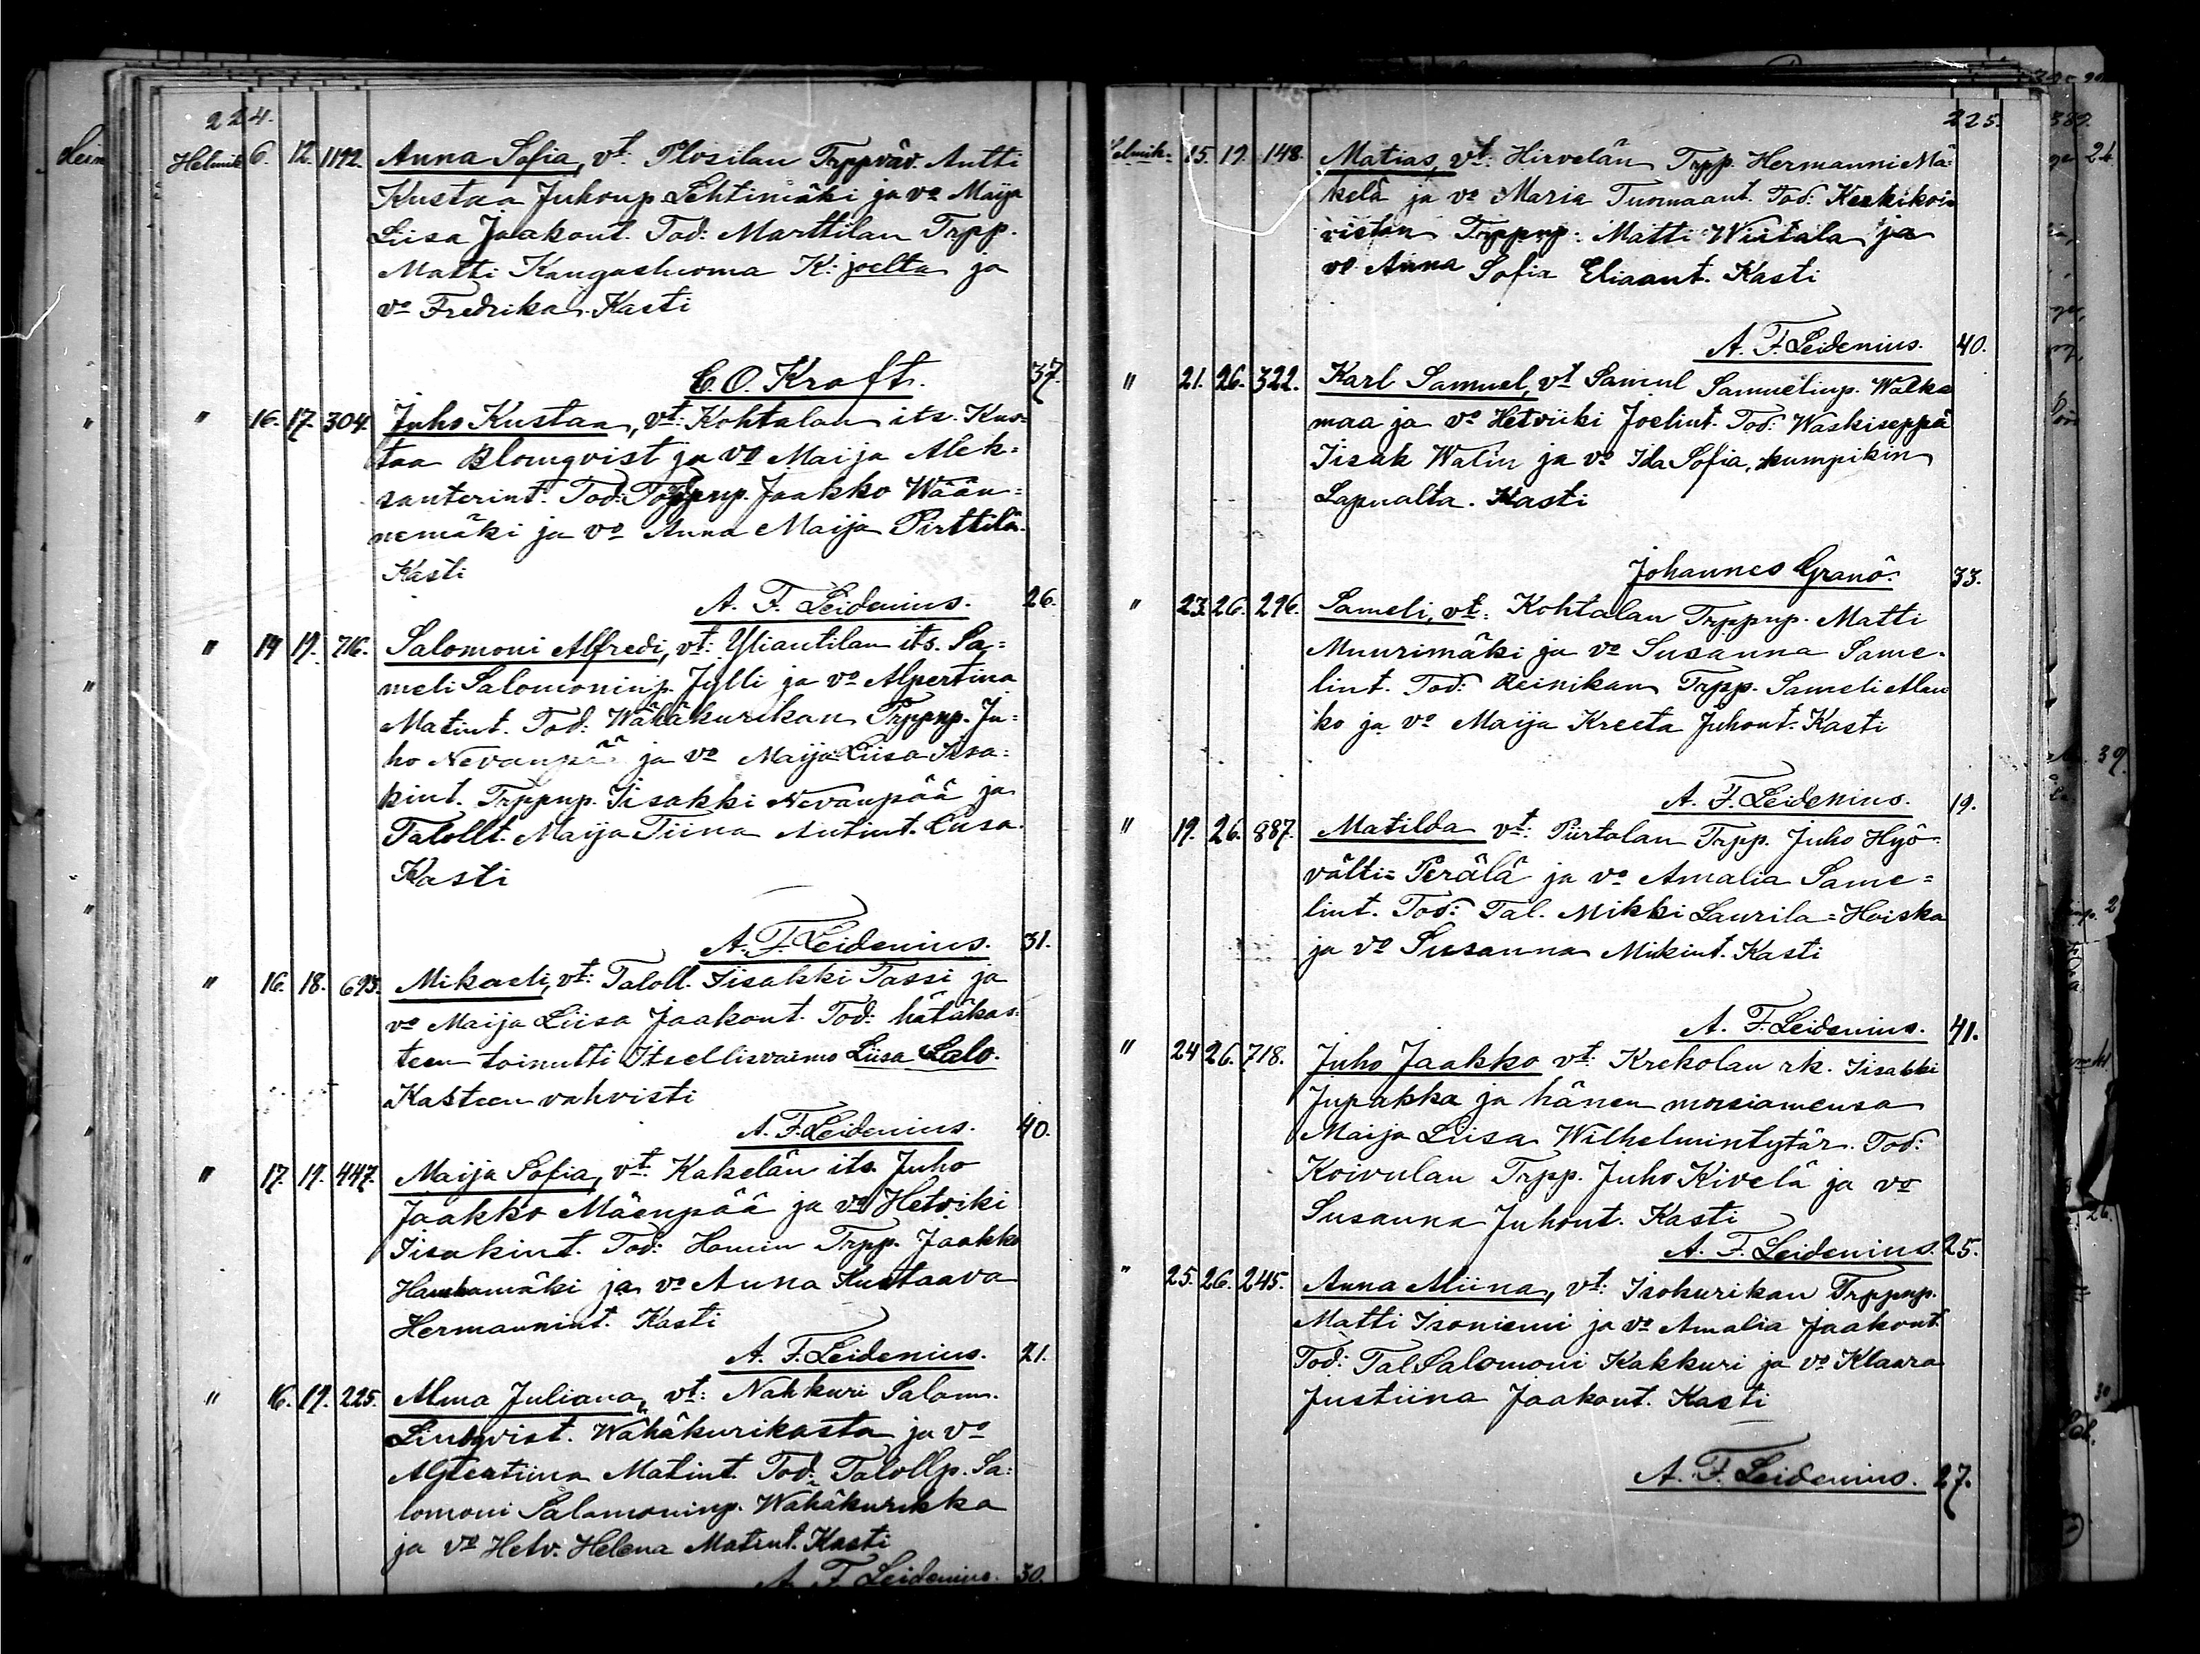 224.
Helmik. 6. 12. 1192. Anna Sofia, vt. Plosilan Trppväv. Antti
Kustaa Juhonp. Lehtimäki ja vo Maija
Liisa Jaakont. Tod: Marttilan Trpp.
Matti Kangasluoma K:joelta ja
vo Fredrika. Kasti
C. O. Kraft. 37.
" 16. 17. 304. Juho Kustaa, vt: Kohtalan its. Kus=
taa Blomqvist ja vo Maija Alek=
santerint. Tod: Jaakko Wään=
nemäki ja vo Anna Maija Pirttilä.
Kasti
A. F. Leidenius. 26.
" 19 19. 716. Salomoni Alfredi, vt: Yliantilan its. Sa=
meli Salomoninp. Jylli ja vo Alpertina
Matint. Tod: Wähäkurikan Trppnp. Ju=
ho Nevanpää ja vo Maija Liisa Iisa=
kint. Trppnp. Iisakki Nevanpää ja
Talollt. Maija Tiina Antint. Lusa.
Kasti
A. F. Leidenius. 31.
" 16. 18. 693. Mikaeli, vt: Taloll. Iisakki Passi ja
vo Maija Liisa Jaakont. Tod: hätäkas=
teen toimitti Itsellisvaimo Liisa Salo.
Kasteen vahvisti
A. F. Leidenius. 40.
" 17. 19. 447. Maija Sofia, vt. Kakelän its. Juho
Jaakko Mäenpää ja vo Hetviki
Iisakint. Tod: Homin Trpp. Jaakko
Hauhamäki ja vo Anna Kustaava
Hermannint. Kasti
A. F. Leidenius. 21.
" 16. 19. 225. Alma Juliana, vt: Nahkuri Salom.
Lindqvist. Wähäkurikasta ja vo
Alpertiina Matint. Tod: Talollp. Sa=
lomoni Salomoninp. Wähäkurikka
ja vo Hetv. Helena Matint. Kasti
A. F. Leidenius. 30.
225.
Helmik. 15. 19. 148. Matias, vt: Hirvelän Trpp. Hermanni Mä=
kelä ja vo Maria Tuomaant. Tod: Keskikoi=
viston Trppnp. Matti Wiitala ja
vo Anna Sofia Eliaant. Kasti
A. F. Leidenius. 40.
" 21. 26. 322. Karl Samuel, vt Samul Samuelinp. Walka
maa ja vo Hetviiki Joelint. Tod: Waskiseppä
Iisak Walin ja vo Ida Sofia, kumpikin
Lapualta. Kasti
Johannes Granö. 33.
" 23. 26. 296. Sameli, vt: Kohtalan Trppnp. Matti
Muurimäki ja vo Susanna Same=
lint. Tod: Reinikan Trpp. Sameli Alan
ko ja vo Maija Kreeta Juhont. Kasti
A. F. Leidenius. 19.
" 19. 26. 887. Matilda vt: Piirtolan Trpp. Juho Hyö=
välti=Perälä ja vo Amalia Same=
lint. Tod: Tal. Mikki Laurila=Hoiska
ja vo Susanna Mikint. Kasti
A. F. Leidenius. 41.
" 24 26. 718. Juho Jaakko vt: Krekolan rk. Iisakki
Jupakka ja hänen morsiamensa
Maija Liisa Wilhelmintytär. Tod:
Koivulan Trpp. Juho Kivelä ja vo
Susanna Juhont. Kasti
A. F. Leidenius. 25.
" 25. 26. 245. Anna Miina, vt: Isokurikan Trppnp.
Matti Isoniemi ja vo Amalia Jaakont.
Tod: Tal Salomoni Kakkuri ja vo Klaara
Justiina Jaakont. Kasti
A. F. Leidenius. 27.